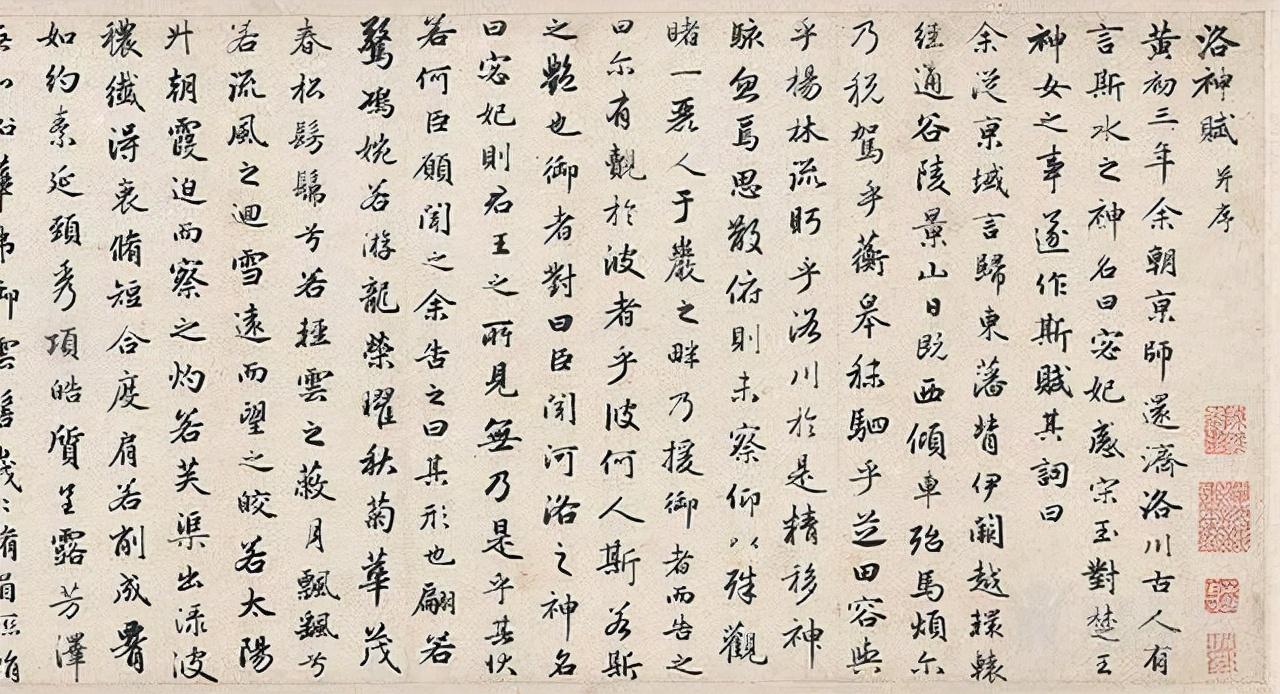 洛神賦 并序
黄初三年余朝京師還濟洛川古人有
言斯水之神名曰宓妃感宋玉對楚王
神女之事遂作斯賦其詞曰
余從京域言歸東藩背伊闕越轘轅
經通谷陵景山日既西傾車殆馬煩尔
乃税駕乎蘅皋秣駟乎芝田容與
乎楊林流眄乎洛川於是精移神
駭忽焉思散俯則未察仰以殊觀
睹一麗人于巖之畔乃援御者而告之
曰尔有覿於彼者乎彼何人斯若斯
之豔也御者對曰臣聞河洛之神名
曰宓妃則君王之所見無乃是乎其狀
若何臣願聞之余告之曰其形也翩若
驚鴻婉若游龍榮曜秋菊華茂
春松髣髴兮若輕雲之蔽月飄颻兮
若流風之迴雪遠而望之皎若太陽
升朝霞迫而察之灼若芙蕖出渌波
穠纖得衷脩短合度肩若削成腰
如約素延頸秀項皓質呈露芳澤